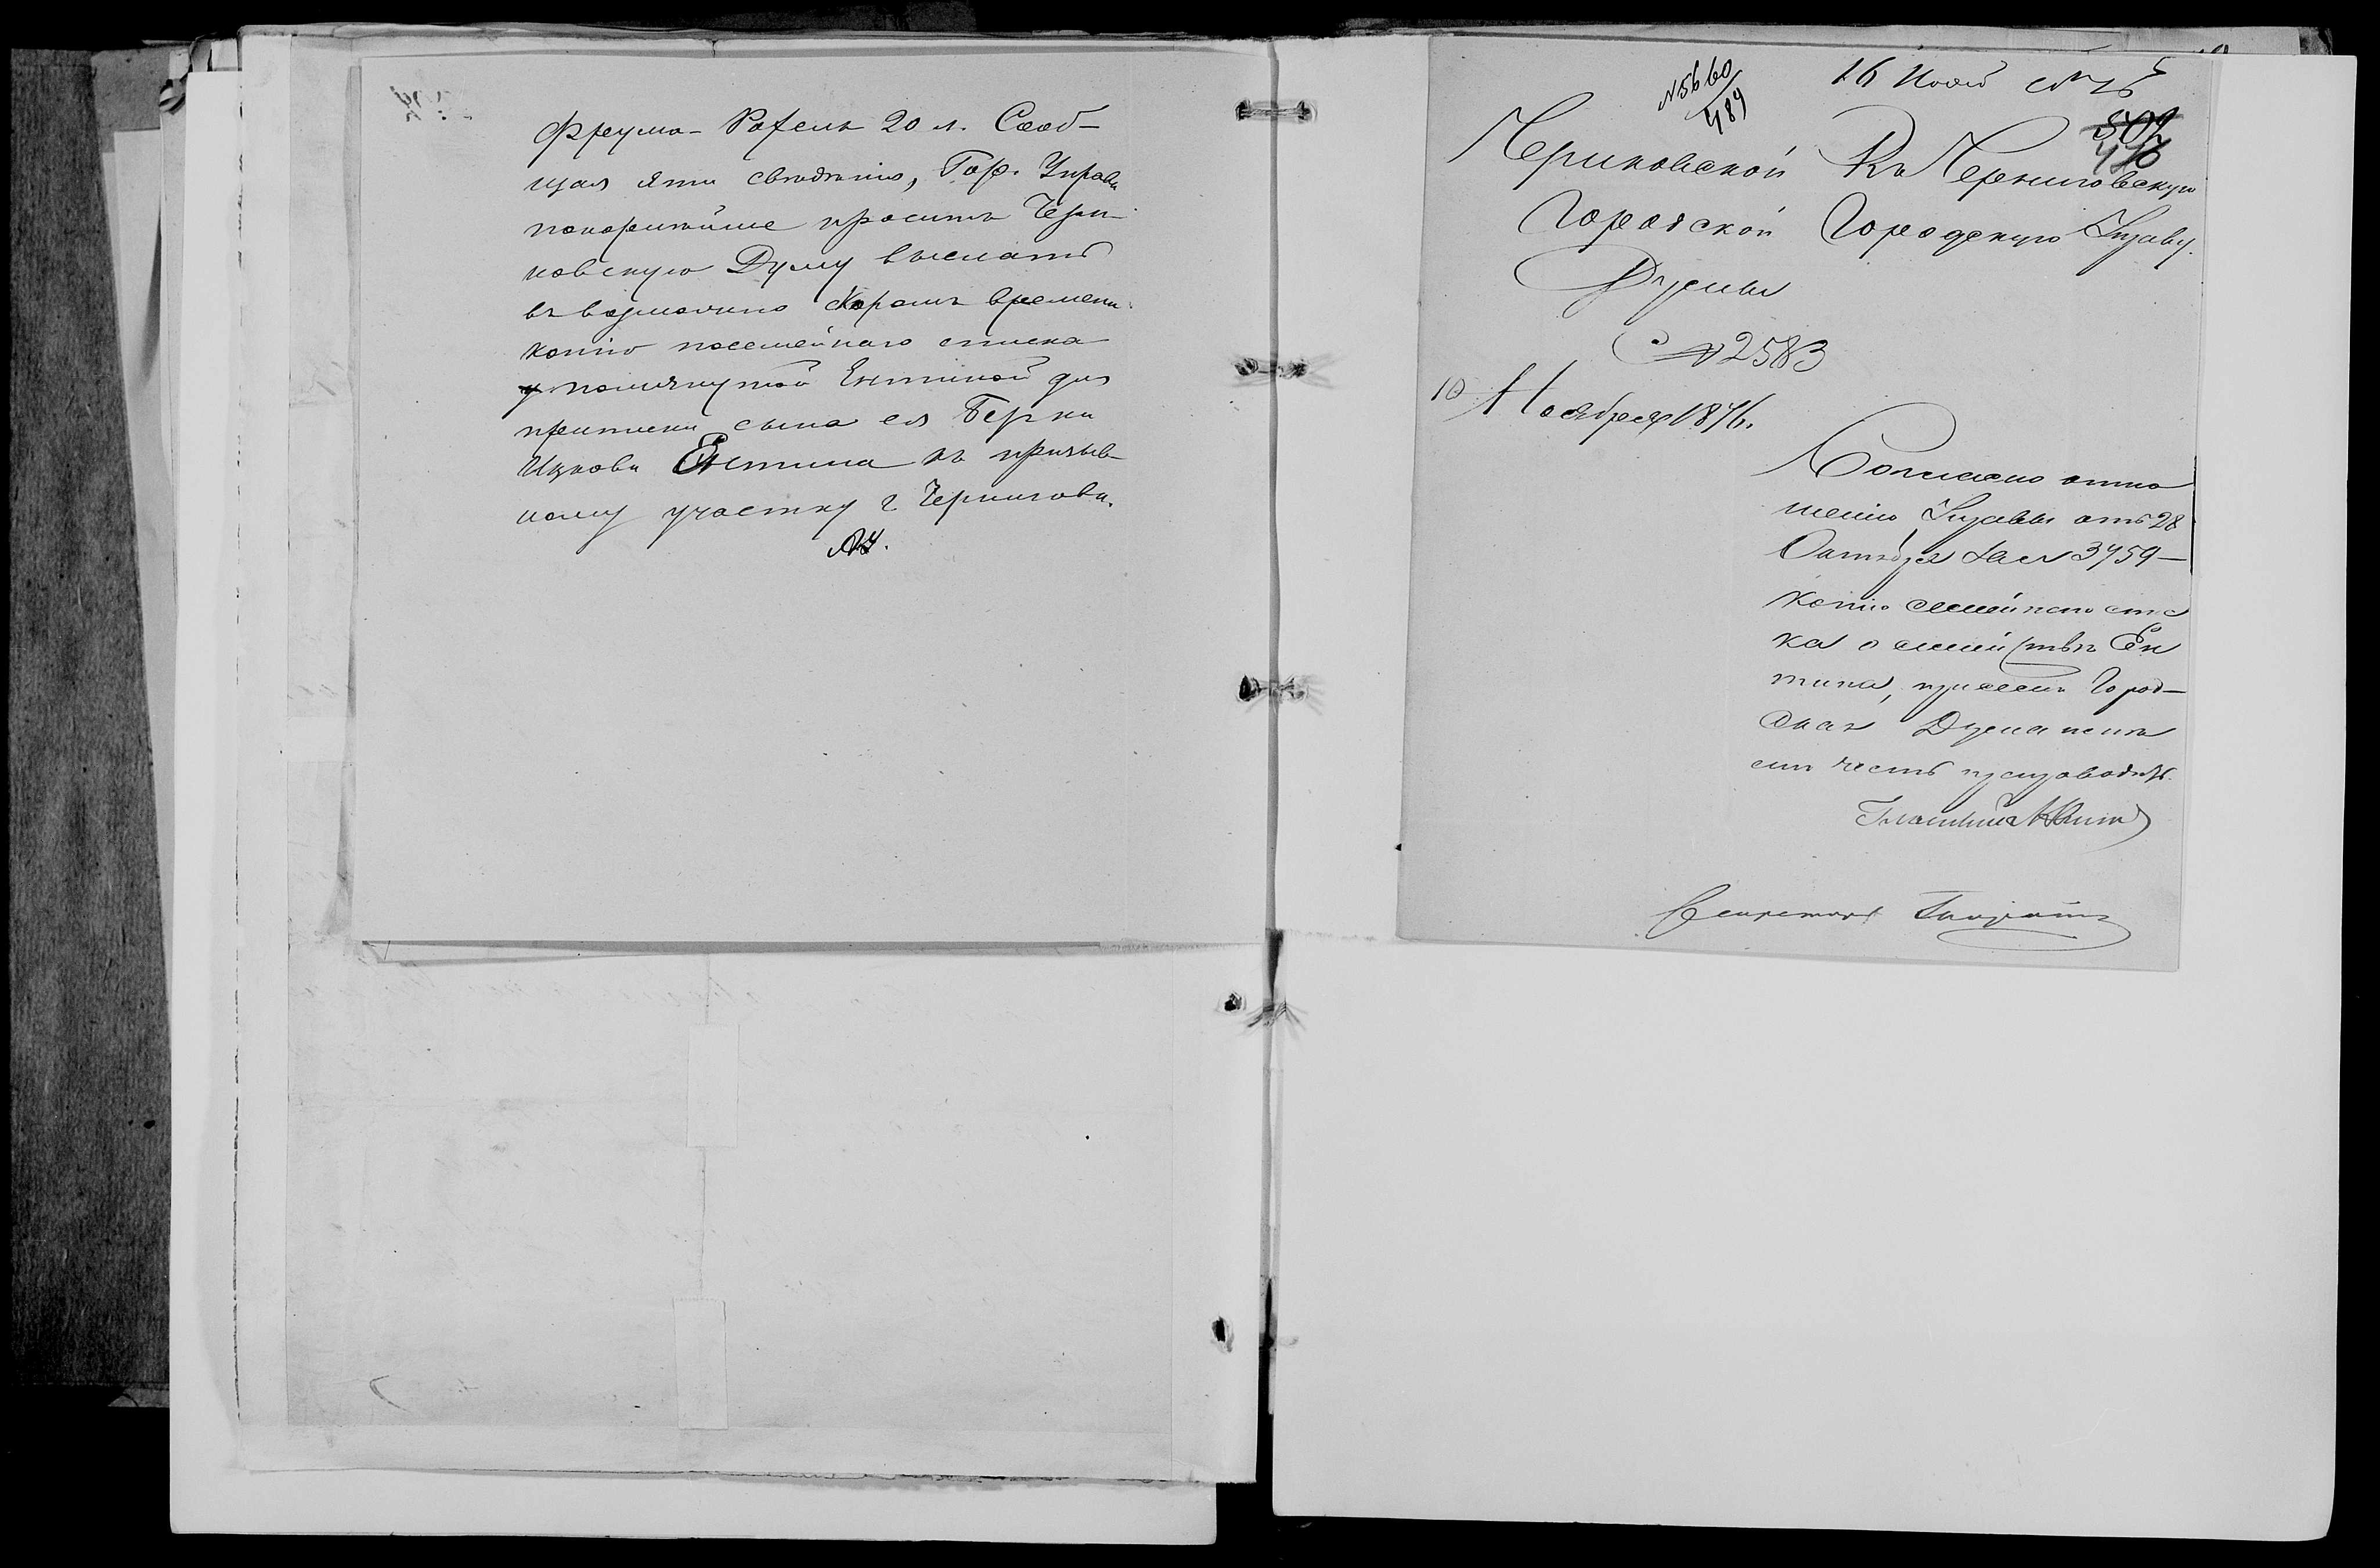 Фрума-Рохель 20 л. Сооб-
щая эти сведенія, Гор. Управа
покорнейше проситъ Чери-
ковскую Думу выслать
въ возможно скоромъ времени
копію посемейнаго списка
упомянутой Ентиной для
приписки сына ея Берки
Ицкова Ентина къ призыв-
ному участку г. Чернигова.
№5660
489
16 Нояб
502
476
Чериковской
Городской
Думы
№ 2583
10 Ноября 1876.
Въ Черниговскую
Городскую Управу.
Согласно отно
шенію Управы отъ 28
Октября за № 3959-
копію семейнаго спис
ка о семействѣ Ен
тина, при семъ Город-
ская Дума имѣ
етъ честь препроводить.
Гласный
Секретарь